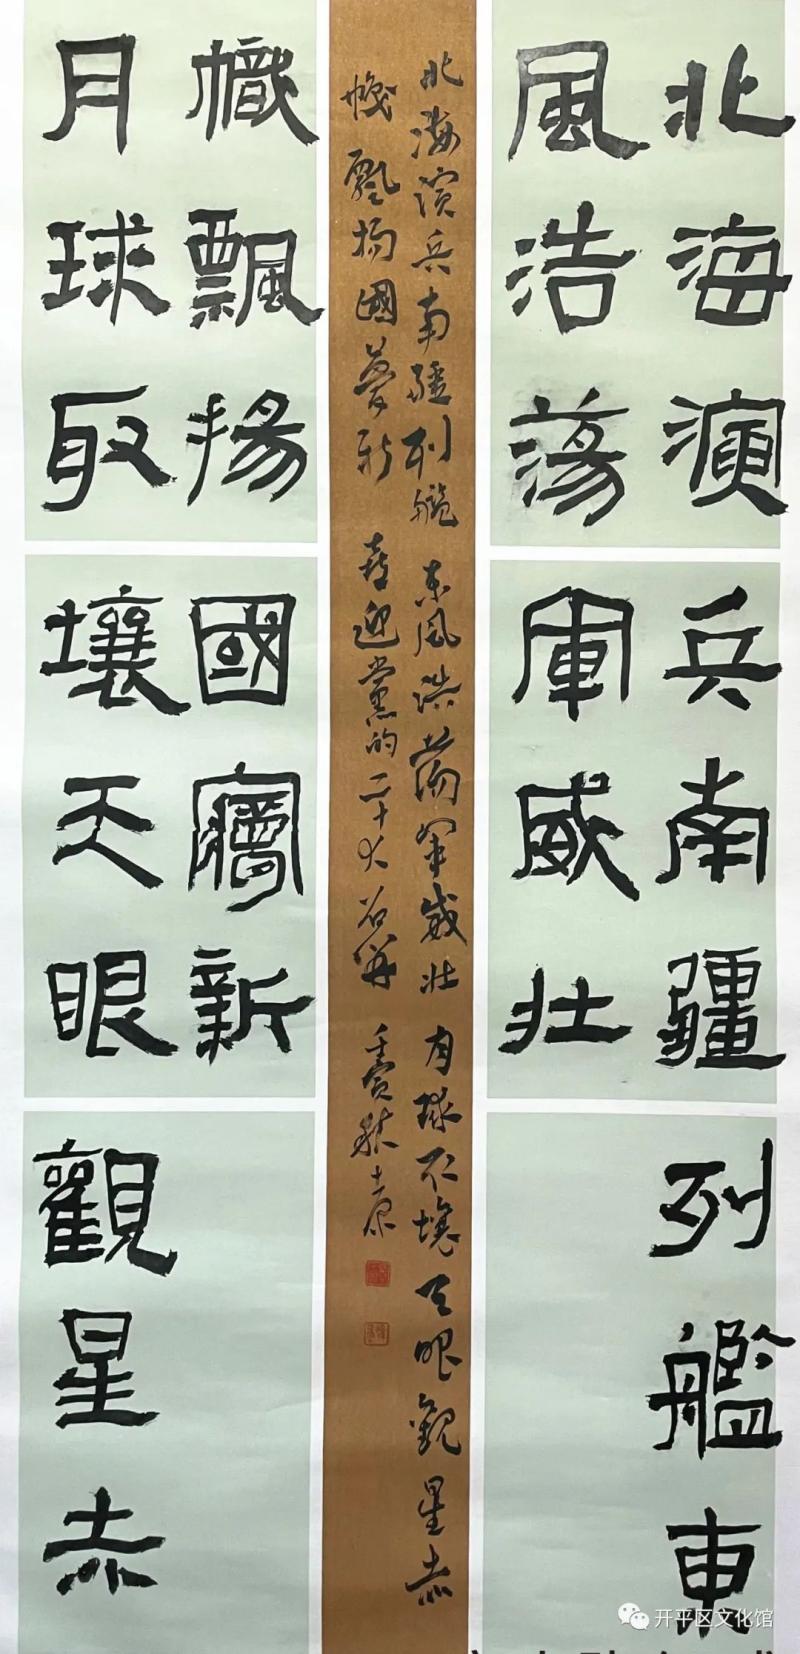 北海演兵南疆列艦東
風浩蕩軍威壯
月球取壤天眼觀星赤
幟飄揚國夢新
北海演兵南疆列艦 東風浩蕩軍威壯 月球取壤天眼觀星赤
幟飄揚國夢新 喜迎黨的二十大召開
开平区文化馆